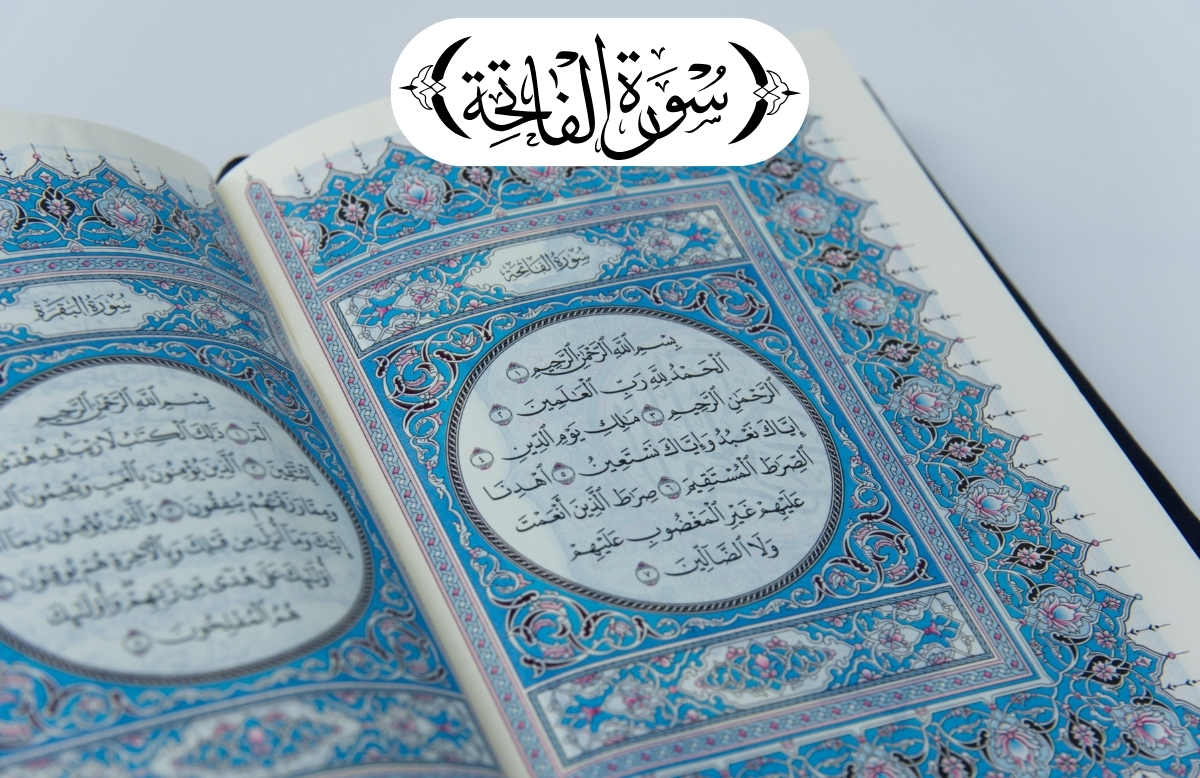 سُورَةُ الْفَاتِحَةِ
سُورَةُ الفَاتِحَةِ
بِسْمِ ٱللَّهِ ٱلرَّحْمَٰنِ ٱلرَّحِيمِ ١
ٱلْحَمْدُ لِلَّهِ رَبِّ ٱلْعَٰلَمِينَ ٢
ٱلرَّحْمَٰنِ ٱلرَّحِيمِ ٣ مَٰلِكِ يَوْمِ ٱلدِّينِ ٤
إِيَّاكَ نَعْبُدُ وَإِيَّاكَ نَسْتَعِينُ ٥ ٱهْدِنَا
ٱلصِّرَٰطَ ٱلْمُسْتَقِيمَ ٦ صِرَٰطَ ٱلَّذِينَ أَنْعَمْتَ
عَلَيْهِمْ غَيْرِ ٱلْمَغْضُوبِ عَلَيْهِمْ
وَلَا ٱلضَّآلِّينَ ٧
سُورَةُ البَقَرَةِ
بِسْمِ ٱللَّهِ ٱلرَّحْمَٰنِ ٱلرَّحِيمِ
الٓمٓ ١ ذَٰلِكَ ٱلْكِتَٰبُ لَا رَيْبَ فِيهِ هُدًى
لِّلْمُتَّقِينَ ٢ ٱلَّذِينَ يُؤْمِنُونَ بِٱلْغَيْبِ وَيُقِيمُونَ
وَمِمَّا رَزَقْنَٰهُمْ يُنفِقُونَ ٣ وَٱلَّذِينَ يُؤْمِنُونَ بِمَآ
إِلَيْكَ وَمَآ أُنزِلَ مِن قَبْلِكَ وَبِٱلْءَاخِرَةِ هُمْ يُوقِنُونَ
أُو۟لَٰٓئِكَ عَلَىٰ هُدًى مِّن رَّبِّهِمْ وَأُو۟لَٰٓئِكَ
هُمُ ٱلْمُفْلِحُونَ ٥